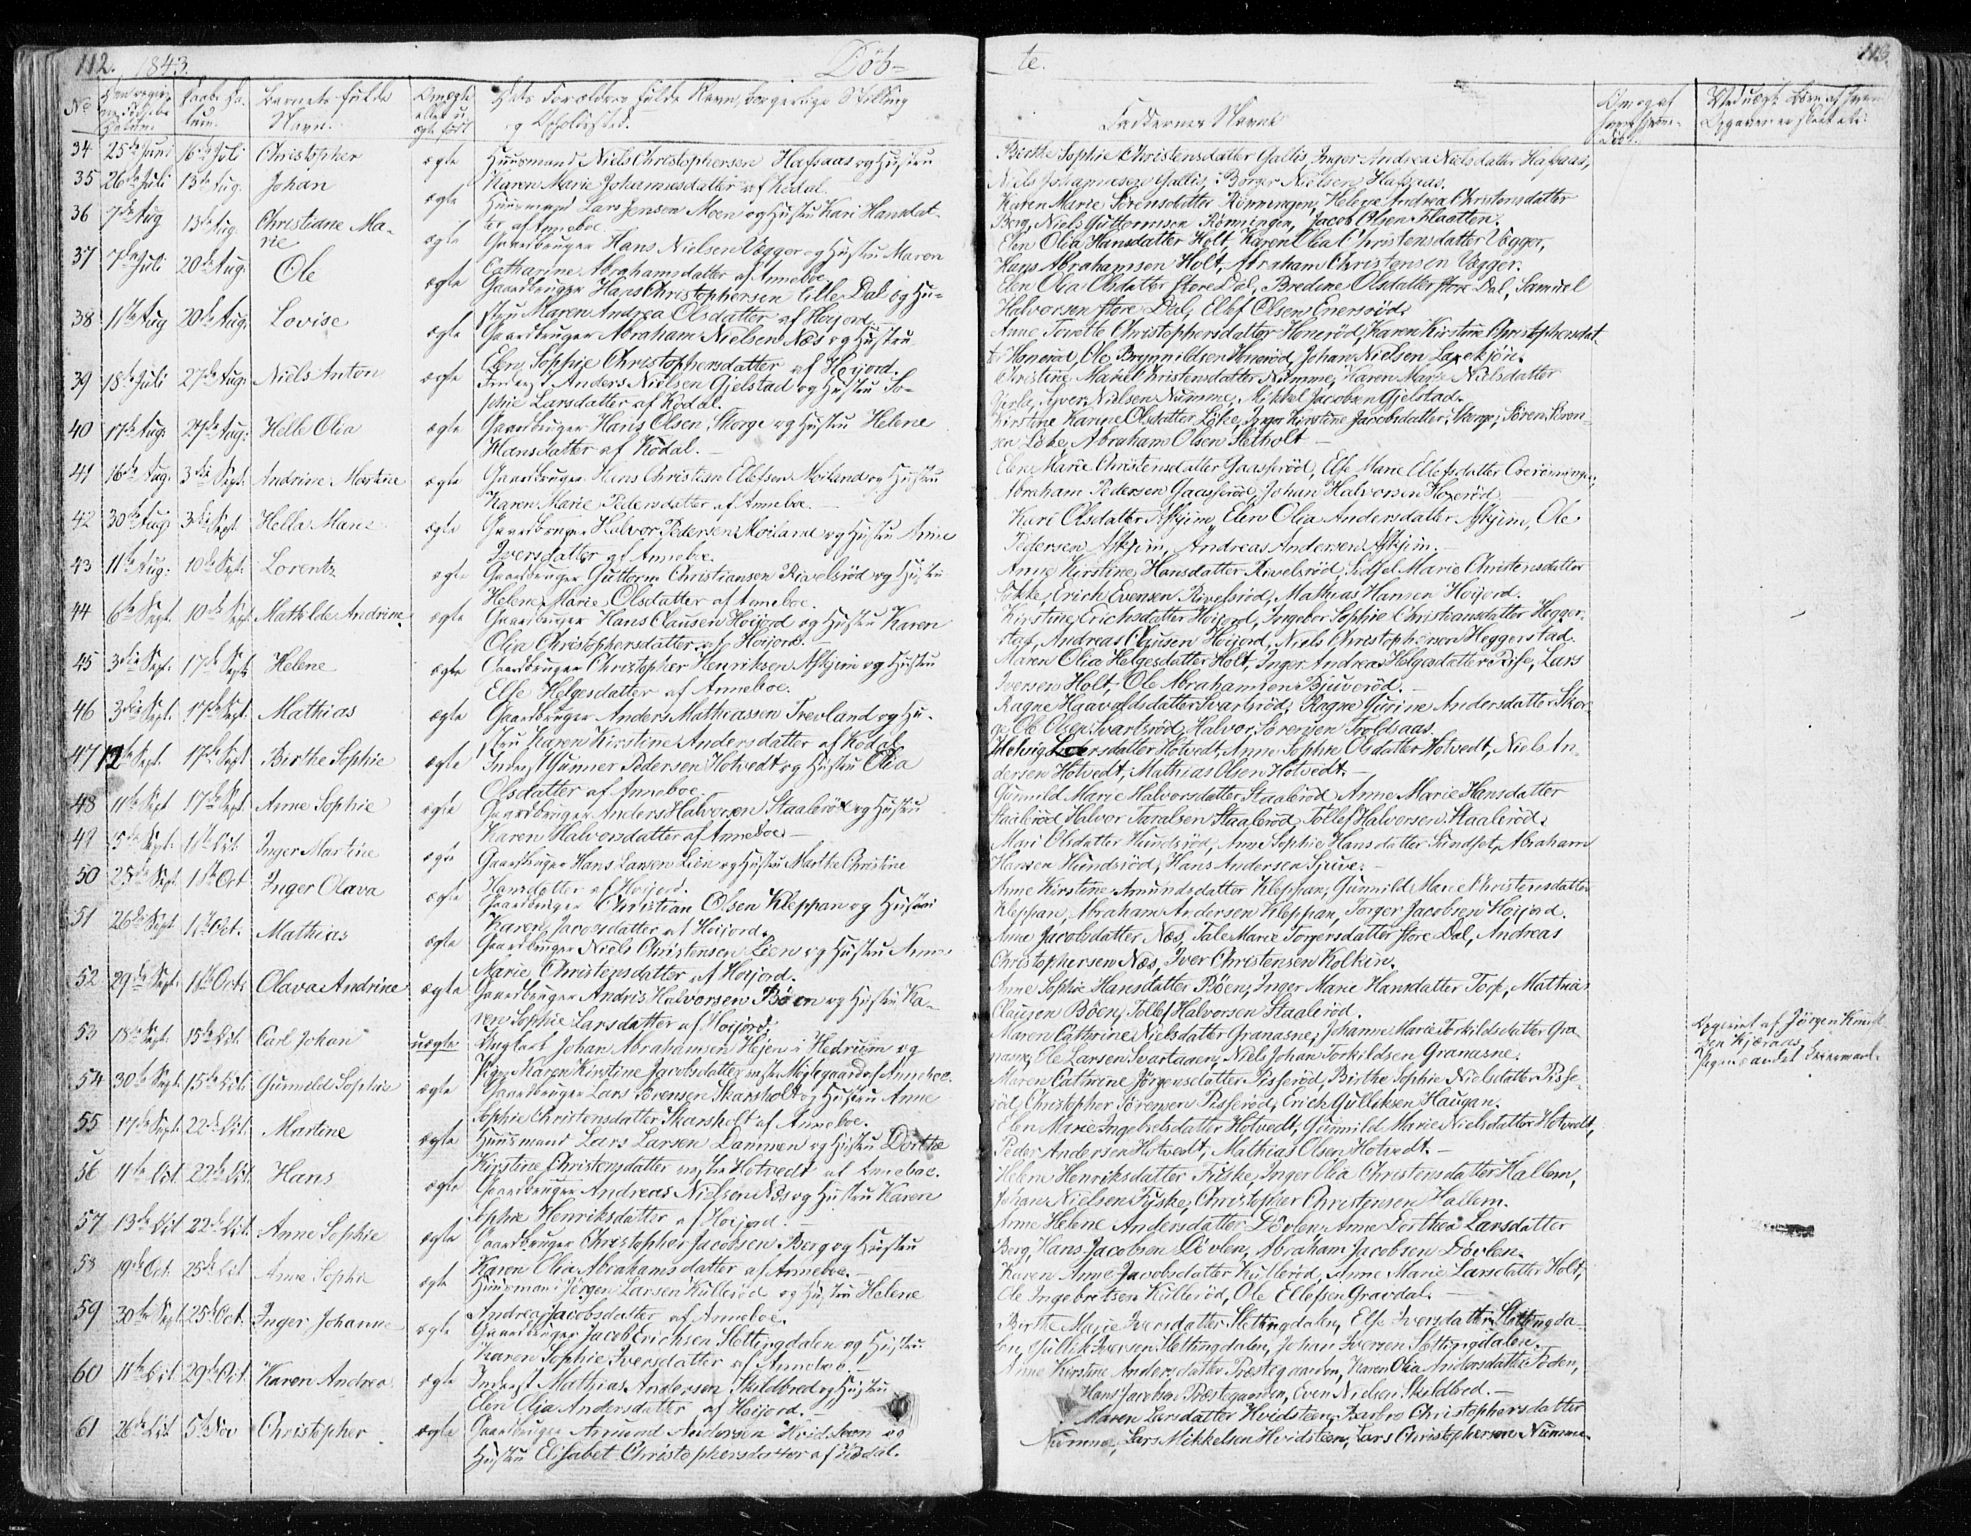 112. 1843. Døb-
No
Barnets fulde Navn.
34 25de Juni 16de Juli Christopher ægte Huusmand Niels Christophersen Hafsaas og Hustru
Karen Marie Johannesdatter af Kodal.
35 26de Juli 13de Aug. Johan ægte Huusmand Lars Jensen Moen og Hustru Kari Hansdat-
ter af Anneboe.
36 7de Aug 13de Aug. Christiane Ma-
rie ægte Gaardbruger Hans Nielsen Vegger og Hustru Maren
Cathrine Abrahamsdatter af Anneboe
37 7de Juli 20de Aug. Ole ægte Gaardbruger Hans Christophersen lille Dal og Hu-
stru Maren Andrea Olsdatter af Høijord.
38 11te Aug 20de Aug. Lovise ægte Gaardbruger Abraham Nielsen Næs og Hustru
Elen Sophie Christophersdatter af Høijord.
39 18de Juli 27de Aug. Niels Anton ægte Inderst Anders Nielsen Gjelstad og Hustru So-
phie Larsdatter af Kodal.
40 17de Aug. 27de Aug. Helle Olia ægte Gaardbruger Hans Olsen Storge og Hustru Helene
Hansdatter af Kodal.
41 16de Aug. 3die Sept. Andrine Martine ægte Gaardbruger Hans Christian Ellefsen Møiland og Hustru
Karen Marie Pedersdatter af Anneboe.
42 30de Aug 3die Sept Hella Marie ægte Gaardbruger Halvor Pedersen Møiland og Hustru Anne
Iversdatter af Anneboe.
43 11te Aug. 10de Sept. Lorentz ægte Gaardbruger Guttorm Christiansen Rivelsrød og Hustru
Helene Marie Olsdatter af Anneboe.
44 6te Sept. 10de Sept. Mathilde Andrine ægte Gaardbruger Hans Clausen Høijord og Hustru Karen
Olia Christophersdatter af Høijord.
45 3die Sept. 17de Sept. Helene ægte Gaardbruger Christopher Henriksen Askjem og Hustru
Else Helgesdatter af Anneboe.
46 3die Sept. 17de Sept. Mathias ægte Gaardbruger Anders Mathiassen Trevland og Hu-
stru Karen Kirstine Andersdatter af Kodal
47 12te Sept. 17de Sept Birthe Sophie ægte Inderst Gunner Pedersen Hotvedt og Hustru Olia
Olsdatter af Anneboe
48 11te Sept 17de Sept. Anne Sophie ægte Gaardbruger Anders Halvorsen Staalerød og Hustru
Karen Halvorsdatter af Anneboe
49 15de Sept. 1ste Oct. Inger Martine ægte Gaardbruger Hans Larsen Lien og Hustru Marthe Christine
Hansdatter af Høijord.
50 25de Sept 1ste Oct Inger Olava ægte Gaardbruger Christian Olsen Kleppan og Hustru
Karen Jacobsdatter af Høijord.
51 26de Sept 1ste Oct. Mathias ægte Gaardbruger Niels Christensen Lien og Hustru Anne
Marie Christensdatter af Høijord.
52 29de Sept. 1ste Oct. Olava Andrine ægte Gaardbruger Andris Halvorsen Bøen og Hustru Ka-
ren Sophie Larsdatter af Høijord.
53 18de Sept. 15de Oct. Carl Johan uægte Ungkarl Johan Abrahamsen Hejen i Hedrum og
Pige Karen Kirstine Jacobsdatter af Anneboe.
54 30te Sept. 15de Oct. Gunnild Sophie ægte Gaardbruger Lars Sørensen Skarsholt og Hustru Anne
Sophie Christensdatter Skarsholt af Anneboe.
55 17de Sept. 22de Oct. Martine ægte Huusmand Lars Larsen Dammen og Hustru Dorthe
Kirstine Christensdatter Hotvedt af Anneboe.
56 11te Oct. 22de Oct. Hans ægte Gaardbruger Andreas Nielsen Næs og Hustru Karen
Sophie Henriksdatter af Høijord.
57 13de Oct 22de Oct. Anne Sophie ægte Gaardbruger Christopher Jacobsen Berg og Hustru
Karen Olia Abrahamsdatter af Anneboe.
58 19de Oct. 25de Oct Anne Sophie ægte Huusmand Jørgen Larsen Kullerød og Hustru Helene
Andrea Jacobsdatter af Anneboe.
59 30te Sept 25de Oct. Inger Johanne ægte Gaardbruger Jacob Erichsen Slettingdalen og Hustru
Karen Sophie Iversdatter af Anneboe.
60 11te Oct 29de Oct. Karen Andrea ægte Inderst Mathias Andersen Skildbred og Hustru
Elen Olia Andersdatter af Høijord.
61 26de Oct 5te Nov Christopher ægte Gaardbruger Amund Andersen Hvidsteen og
Hustru Elisabet Christophersdatter af Kodal.
te. 113.
Faddernes Navne
Birthe Sophie Christensdatter Gallis, Inger Andrea Nielsdatter Hafsaas,
Niels Johannesen Gallis, Børger Nielsen Hafsaas.
Karen Marie Sørensdatter Rønningen, Helene Andrea Christensdatter
Berg, Niels Guttormsen Rønningen, Jacob Olsen Flaatten.
Elen Olia Hansdatter Holt, Karen Olia Christensdatter Vegger,
Hans Abrahamsen Holt, Abraham Christensen Vegger.
Elen Olia Olsdatter store Dal, Bredine Olsdatter store Dal, Samuel
Halvorsen store Dal, Ellef Olsen Enersrød.
Anne Torette Christophersdatter Honerød, Karen Kirstine Christophersdat
ter Honerød, Ole Brynnildsen Honerød, Johan Nielsen
Christine Marie Christensdatter Numme, Karen Marie Nielsdatter
Iver Nielsen Numme, Mikkel Jacobsen Gjelstad.
Kirstine Karine Olsdatter Løke, Inger Kirstine Jacobsdatter Storge, Søren Søren-
sen Løke, Abraham Olsen
Elen Marie Christensdatter Gaaserød, Else Marie Ellefsdatter
Abraham Pedersen Gaaserød, Johan Halvorsen
Kari Olsdatter Askjem, Elen Olia Andersdatter Askjem, Ole
Pedersen Askjem, Andreas Andersen Askjem.
Anne Kirstine Hansdatter Rivelsrød, Sidsel Marie Christensdatter
Erich Evensen Rivelsrød, Mathias Hansen Høijord.
Kirstine Erichsdatter Høijord, Ingebor Sophie Christiansdatter Hegger-
stad, Andreas Clausen Høijord, Niels Christophersen Heggerstad.
Maren Olia Helgesdatter Holt, Inger Andrea Helgesdatter Rise, Lars
Iversen Holt, Ole Abrahamsen Bjuerød.
Ragne Haavaldsdatter Svartsrød, Ragne Gurine Andersdatter Skor-
ge, Ole Olsen Svartsrød, Halvor Sørensen Troldsaas.
Helvig Larsdatter Hotvedt, Anne Sophie Olsdatter Hotvedt, Niels An
dersen Hotvedt, Mathias Olsen Hotvedt.
Gunnild Marie Halvorsdatter Staalerød, Anne Marie Hansdatter
Staalerød, Halvor Taralsen Staalerød, Tollef Halvorsen Staalerød.
Mari Olsdatter Hundsrød, Anne Sophie Hansdatter Sundset, Abraham
Hansen Hundsrød, Hans Andersen
Anne Kirstine Amundsdatter Kleppan, Gunnild Marie Christensdatter
Kleppan, Abraham Andersen Kleppan, Torger Jacobsen Høijord.
Anne Jacobsdatter Næs, Tale Marie Torgersdatter store Dal, Andreas
Christophersen Næs, Iver Christensen Kolkin.
Anne Sophie Hansdatter Bøen, Inger Marie Hansdatter Torp, Mathias
Clausen Bøen, Tollef Halvorsen Staalerød.
Maren Cathrine Nielsdatter Granasne, Johanne Marie Torkildsdatter Gra
nasne, Ole Larsen Svartaasen, Niels Johan Torkildsen Granasne.
Maren Cathrine Jørgensdatter Pisserød, Birthe Sophie Nielsdatter Pisse-
rød, Christopher Sørensen Pisserød, Erich Gulliksen Haugan.
Elen Marie Ingebretsdatter Hotvedt, Gunnild Marie Nielsdatter Hotvedt,
Peder Andersen Hotvedt, Mathias Olsen Hotvedt.
Helene Henriksdatter Fitske, Inger Olia Christensdatter Hallem,
Johan Nielsen Fyske, Christopher Christensen Hallem.
Anne Helene Andersdatter Døvlen, Anne Dorthea Larsdatter
Berg, Hans Jacobsen Døvlen, Abraham Jacobsen Døvlen.
Karen Anne Jacobsdatter Kullerød, Anne Marie Larsdatter Holt,
Ole Ingebretsen Kullerød, Ole Ellefsen Gravdal.
Birthe Marie Iversdatter Slettingdalen, Else Iversdatter Slettingda-
len, Gullik Iversen Slettingdalen, Johan Iversen Slettingdalen.
Anne Kirstine Andersdatter Præstegaarden, Karen Olia Andersdatter Foden,
Hans Jacobsen Præstegaarden, Even Nielsen Skildbred.
Maren Larsdatter Hvidsteen, Barbro Christophersdatter
Numme, Lars Mikkelsen Hvidsteen, Lars Christophersen Numme.
af Jørgen